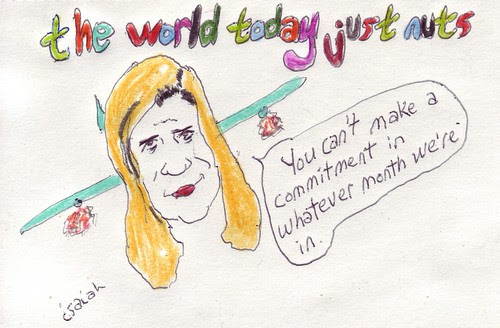 the world today just nuts
You can't make a
commitment in
whatever month we're
in.
isaiah